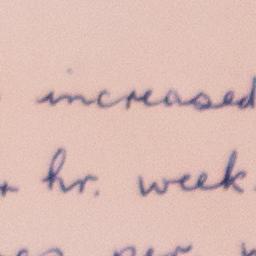 increased
hr. week
per